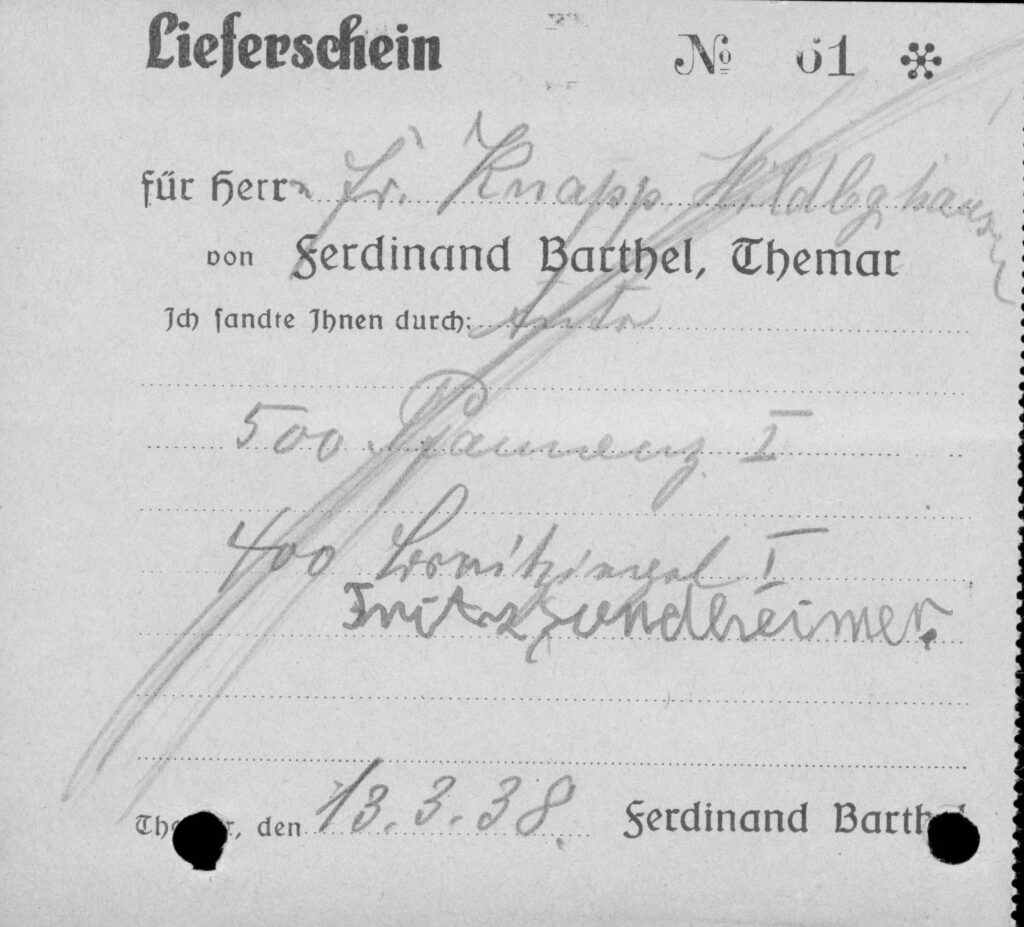 Lieferschein № 61
für Herrn Fr. Knapp Hildbghausen
von Ferdinand Barthel, Themar
Ich sandte Ihnen durch: Auto
500 I
400 I
Fritz Sondheimer.
Themar, den 13.3.38 Ferdinand Barthel